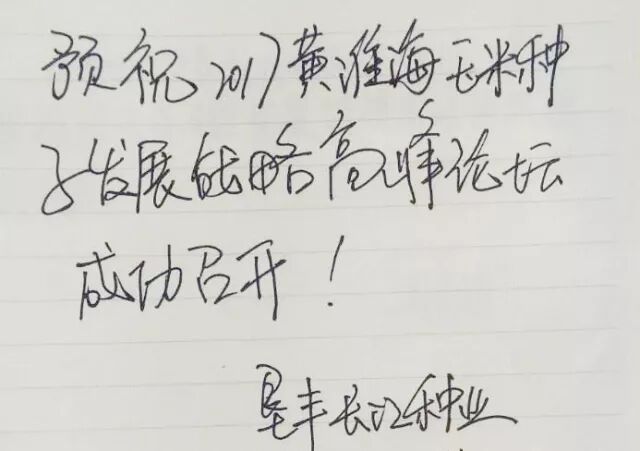 预祝2017黄淮海玉米种
子发展战略高峰论坛
成功召开！
垦丰长江种业